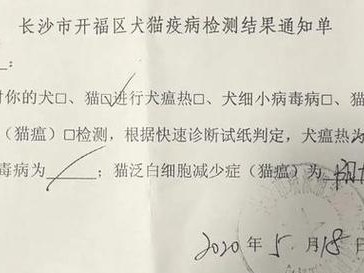 长沙市开福区犬猫疫病检测结果通知单
:
对你的犬□、猫☑进行犬瘟热□、犬细小病毒病□、猫
（猫瘟）☑检测，根据快速诊断试纸判定，犬瘟热为
毒病为______；猫泛白细胞减少症（猫瘟）为 阳
2020年5月18日